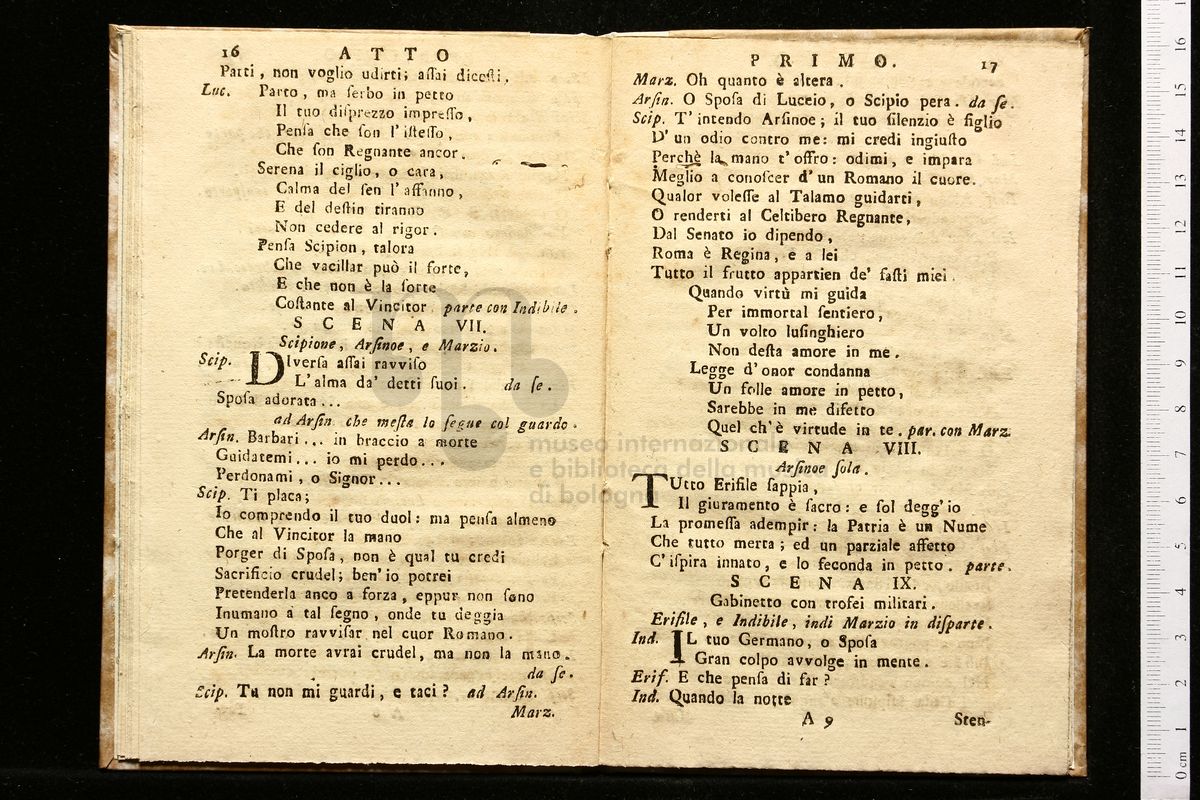 16 A T T O
Parti, non voglio udirti; aſſai diceſti.
Luc. Parto, ma ſerbo in petto
Il tuo diſprezzo impreſſo,
Penſa che ſon l' iſteſſo,
Che ſon Regnante ancor.
Serena il ciglio, o cara,
Calma del ſen l' affanno,
E del deſtin tiranno
Non cedere al rigor.
Penſa Scipion, talora
Che vacillar può il forte,
E che non è la ſorte
Coſtante al Vincitor. parte con Indibile.
S C E N A VII.
Scipione, Arſinoe, e Marzio.
Scip. DIverſa aſſai ravviſo
L' alma da' detti ſuoi. da ſe.
Spoſa adorata...
ad Arſin. che meſta lo ſegue col guardo.
Arſin. Barbari... in braccio a morte
Guidatemi... io mi perdo...
Perdonami, o Signor...
Scip. Ti placa;
Io comprendo il tuo duol: ma penſa almeno
Che al Vincitor la mano
Porger di Spoſa, non è qual tu credi
Sacrificio crudel; ben' io potrei
Pretenderla anco a forza, eppur non ſono
Inumano a tal ſegno, onde tu deggia
Un moſtro ravviſar nel cuor Romano.
Arſin. La morte avrai crudel, ma non la mano.
da ſe.
Scip. Tu non mi guardi, e taci? ad Arſin.
Marz.
P R I M O. 17
Marz. Oh quanto è altera.
Arſin. O Spoſa di Lucceio, o Scipio pera. da ſe.
Scip. T' intendo Arſinoe; il tuo ſilenzio è figlio
D' un odio contro me: mi credi ingiuſto
Perchè la mano t' offro: odimi, e impara
Meglio a conoſcer d' un Romano il cuore.
Qualor voleſſe al Talamo guidarti,
O renderti al Celtibero Regnante,
Dal Senato io dipendo,
Roma è Regina, e a lei
Tutto il frutto appartien de' faſti miei.
Quando virtù mi guida
Per immortal ſentiero,
Un volto luſinghiero
Non deſta amore in me.
Legge d' onor condanna
Un folle amore in petto,
Sarebbe in me difetto
Quel ch' è virtude in te. par. con Marz.
S C E N A VIII.
Arſinoe ſola.
TUtto Erifile ſappia,
Il giuramento è ſacro: e ſol degg' io
La promeſſa adempir: la Patria è un Nume
Che tutto merta; ed un parziale affetto
C' iſpira innato, e lo feconda in petto. parte.
S C E N A IX.
Gabinetto con trofei militari.
Erifile, e Indibile, indi Marzio in diſparte.
Ind. IL tuo Germano, o Spoſa
Gran colpo avvolge in mente.
Erif. E che penſa di far?
Ind. Quando la notte
A 9 Sten-
museo internazionale
e biblioteca della mu
di bologna
0 cm 1 2 3 4 5 6 7 8 9 10 11 12 13 14 15 16